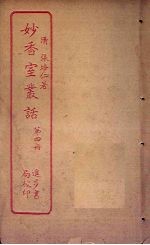 清 張培仁著
妙香室叢話 第四冊
進步書
局校印